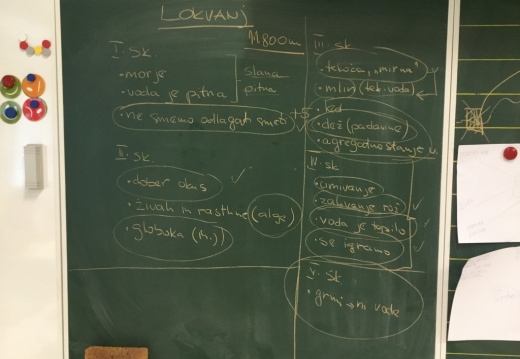 LOKVANJ
M800m
I. sk
• morje
• voda je pitna
slana
pitna
• ne smemo odlagati smeti
II. sk.
• dober okus
• živali in rastline (alge)
• globoka (M.)
III. sk
• tekoča, "mirna"
• mlin (tek. voda)
• led
• dež (padavine)
• agregatno stanje v.
IV. sk
• umivanje
• zalivanje rož
• voda je toplo
• se igramo
V. sk
• grmi → ni vode